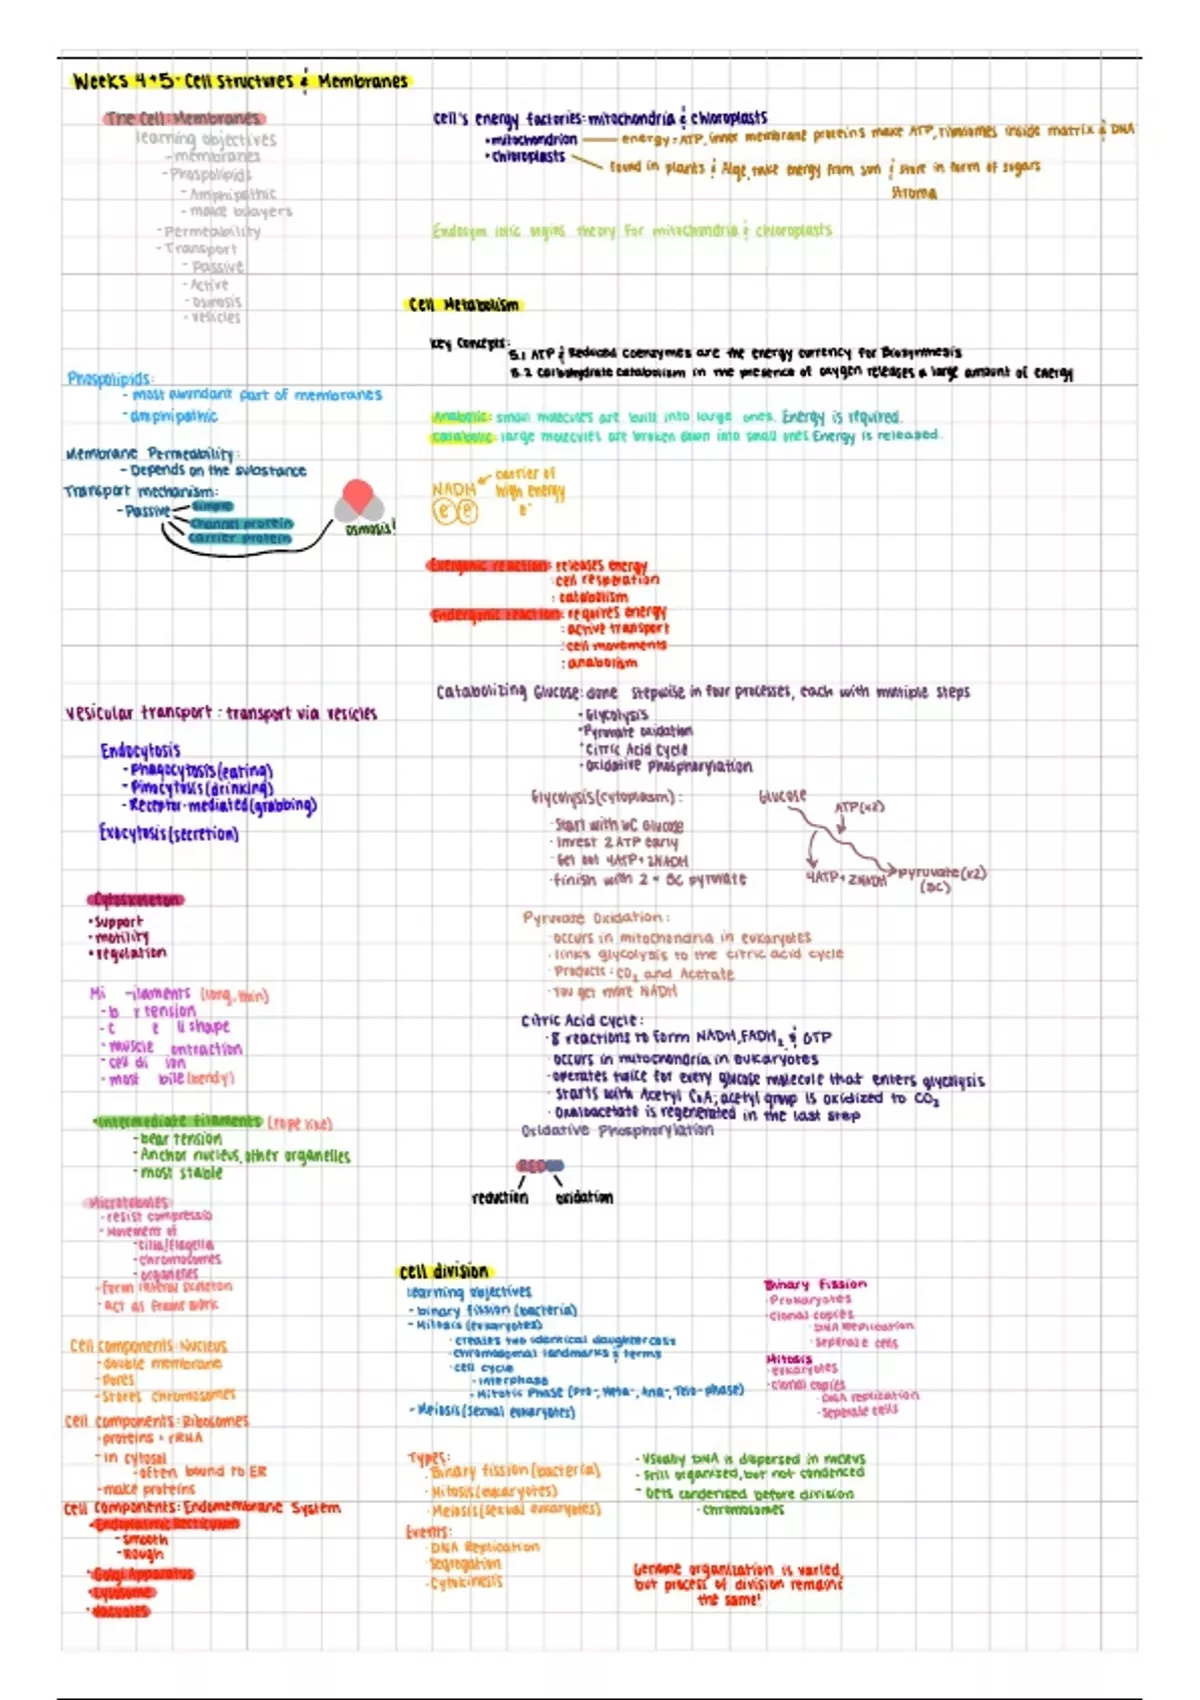 Weeks 4+5-Cell Structures & Membranes
The Cell: Membranes
learning objectives
-membranes
-Phospolipids
-Amphipathic
-make bilayers
-Permeability
-Transport
-Passive
-Active
-Osmosis
-vesicles
Phospolipids:
-most abundant part of membranes
-amphipathic
Membrane Permeability:
-Depends on the substance
Transport mechanism:
-Passive
simple
channel protein
carrier protein
osmosis!
vesicular transport: transport via vesicles
Endocytosis
-Phagocytosis(eating)
-Pinocytosis(drinking)
-Receptor-mediated(grabbing)
Exocytosis(secretion)
Cytoskeleton
•support
•motility
•regulation
Mi -ilaments (long, thin)
-b r tension
-c e ll shape
-muscle ontraction
-cell di ion
-most bile(bendy)
•Intermediate filaments (rope like)
-bear tension
-Anchor nucleus, other organelles
-most stable
Microtubules
-resist compressio
-Movement of
-cilia/flagella
-chromosomes
-organelles
-form internal skeleton
-act as frame work
Cell components: Nucleus
-double membrane
-Pores
-Stores chromosomes
Cell components: Ribosomes
-proteins + rRNA
-in cytosol
-often bound to ER
-make proteins
Cell components: Endomembrane System
•Endoplasmic Recticulum
-smooth
-Rough
•Golgi Apparatus
•Lysosome
•vacuoles
cell's energy factories: mitochondria & chloroplasts
•mitochondrion
energy=ATP, inner membrane proteins make ATP, ribosomes inside matrix & DNA
•chloroplasts
found in plants & Alge, take energy from sun & store in form of sugars
Stroma
Endosym iotic origins theory for mitochondria & chloroplasts
Cell Metabolism
Key Concepts:
5.1 ATP & Reduced coenzymes are the energy currency for Biosynthesis
5.2 Carbohydrate catabolism in the presence of oxygen releases a large amount of energy
Anabolic: small molecules are built into large ones. Energy is required.
Catabolic: large molecules are broken down into small ones Energy is released.
NADH
e⁻ e⁻
carrier of
high energy
e⁻
Exergonic reaction: releases energy
: cell respiration
: catabolism
Endergonic reaction: requires energy
: active transport
: cell movements
: anabolism
Catabolizing Glucose: done stepwise in four processes, each with multiple steps
•Glycolysis
•Pyruvate oxidation
•Citric Acid Cycle
•Oxidative Phosphorylation
Glycolysis(cytoplasm):
•Start with 6C Glucose
•Invest 2 ATP early
•Get out 4ATP + 2NADH
•finish with 2 - 3C pyruvate
Glucose
ATP(x2)
4ATP + 2NADH
pyruvate(x2)
(3C)
Pyruvate Oxidation:
•occurs in mitochondria in eukaryotes
•links glycolysis to the citric acid cycle
•Products: CO₂ and Acetate
•You get more NADH
Citric Acid Cycle:
•8 reactions to form NADH, FADH₂, & GTP
•occurs in mitochondria in eukaryotes
•operates twice for every glucose molecule that enters glycolysis
•starts with Acetyl CoA; acetyl group is oxidized to CO₂
•Oxaloacetate is regenerated in the last step
Oxidative Phosphorylation
REDOX
reduction oxidation
cell division
learning objectives
-binary fission (bacteria)
-Mitosis (eukaryotes)
•creates two identical daughter cells
•chromosomal landmarks & terms
•cell cycle
•interphase
•Mitotic Phase (Pro-, Meta-, Ana-, Telo-phase)
-Meiosis(sexual eukaryotes)
Binary Fission
•Prokaryotes
•Clonal copies
•DNA Replication
•Seperate cells
Mitosis
•eukaryotes
•clonal copies
•DNA replication
•Seperate cells
Types:
•Binary fission(bacteria)
•Mitosis(eukaryotes)
•Meiosis(sexual eukaryotes)
Events:
•DNA Replication
•Segregation
•Cytokinesis
-Usually DNA is dispersed in nucleus
-Still organized, but not condenced
-Gets condensed before division
•chromosomes
Genome organization is varied,
but process of division remains
the same!